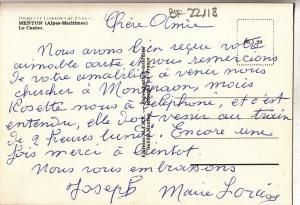 Images et Couleurs de France
MENTON (Alpes-Maritimes)
Le Casino.
BF-22/18
Chère Amie
Nous avons bien reçue votre
aimable carte et vous remercions
de votre amabilité à venir nous
chercher à Montgraon, mais
Rosette nous à téléphone, et c'est
entendu, elle doit venir au train
de 2 heures lundi. Encore une
fois merci à bientot.
Nous vous embrassons
Joseph Marie Louise